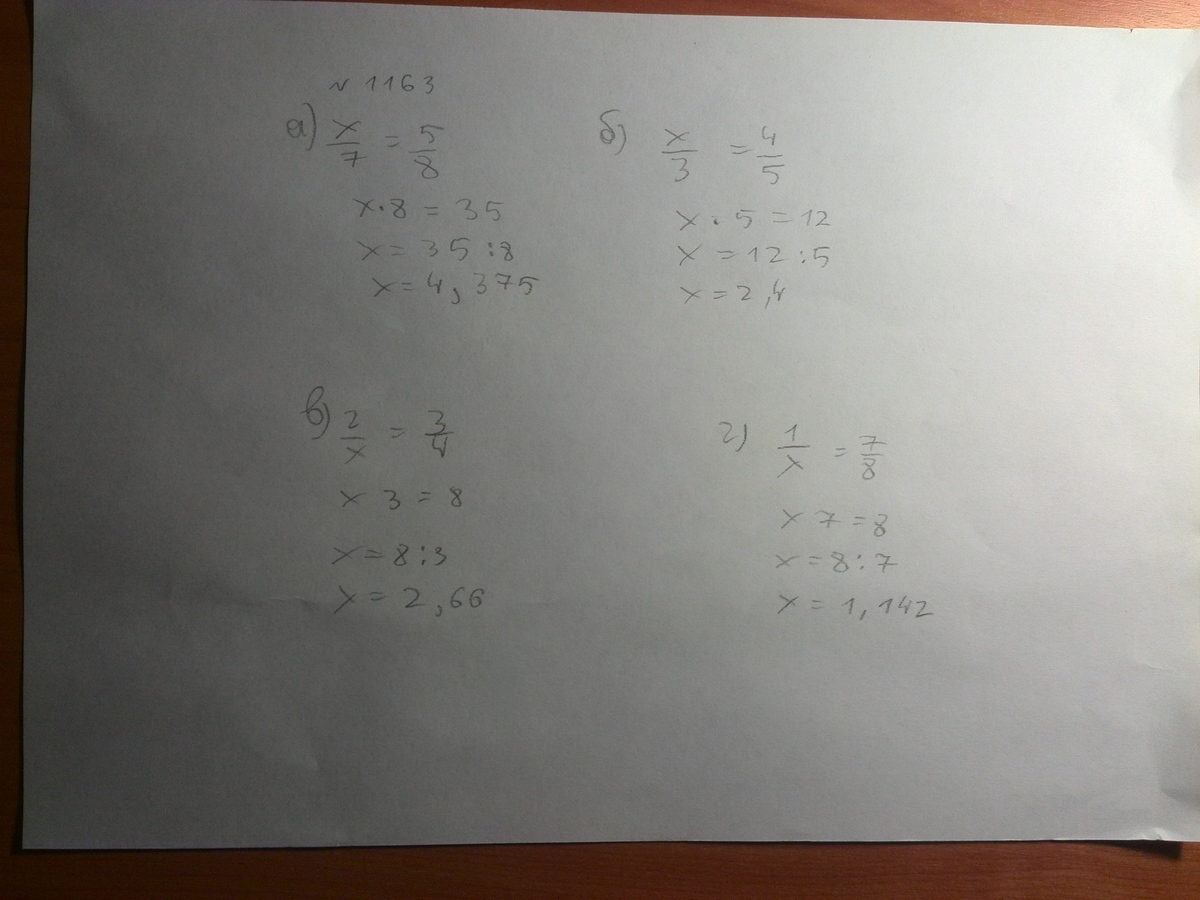 № 1163
а) x/7 = 5/8
x·8 = 35
x = 35 :8
x = 4,375
б) x/3 = 4/5
x · 5 = 12
x = 12 :5
x = 2,4
в) 2/x = 3/4
x 3 = 8
x = 8:3
x = 2,66
г) 1/x = 7/8
x 7 = 8
x = 8:7
x = 1,142